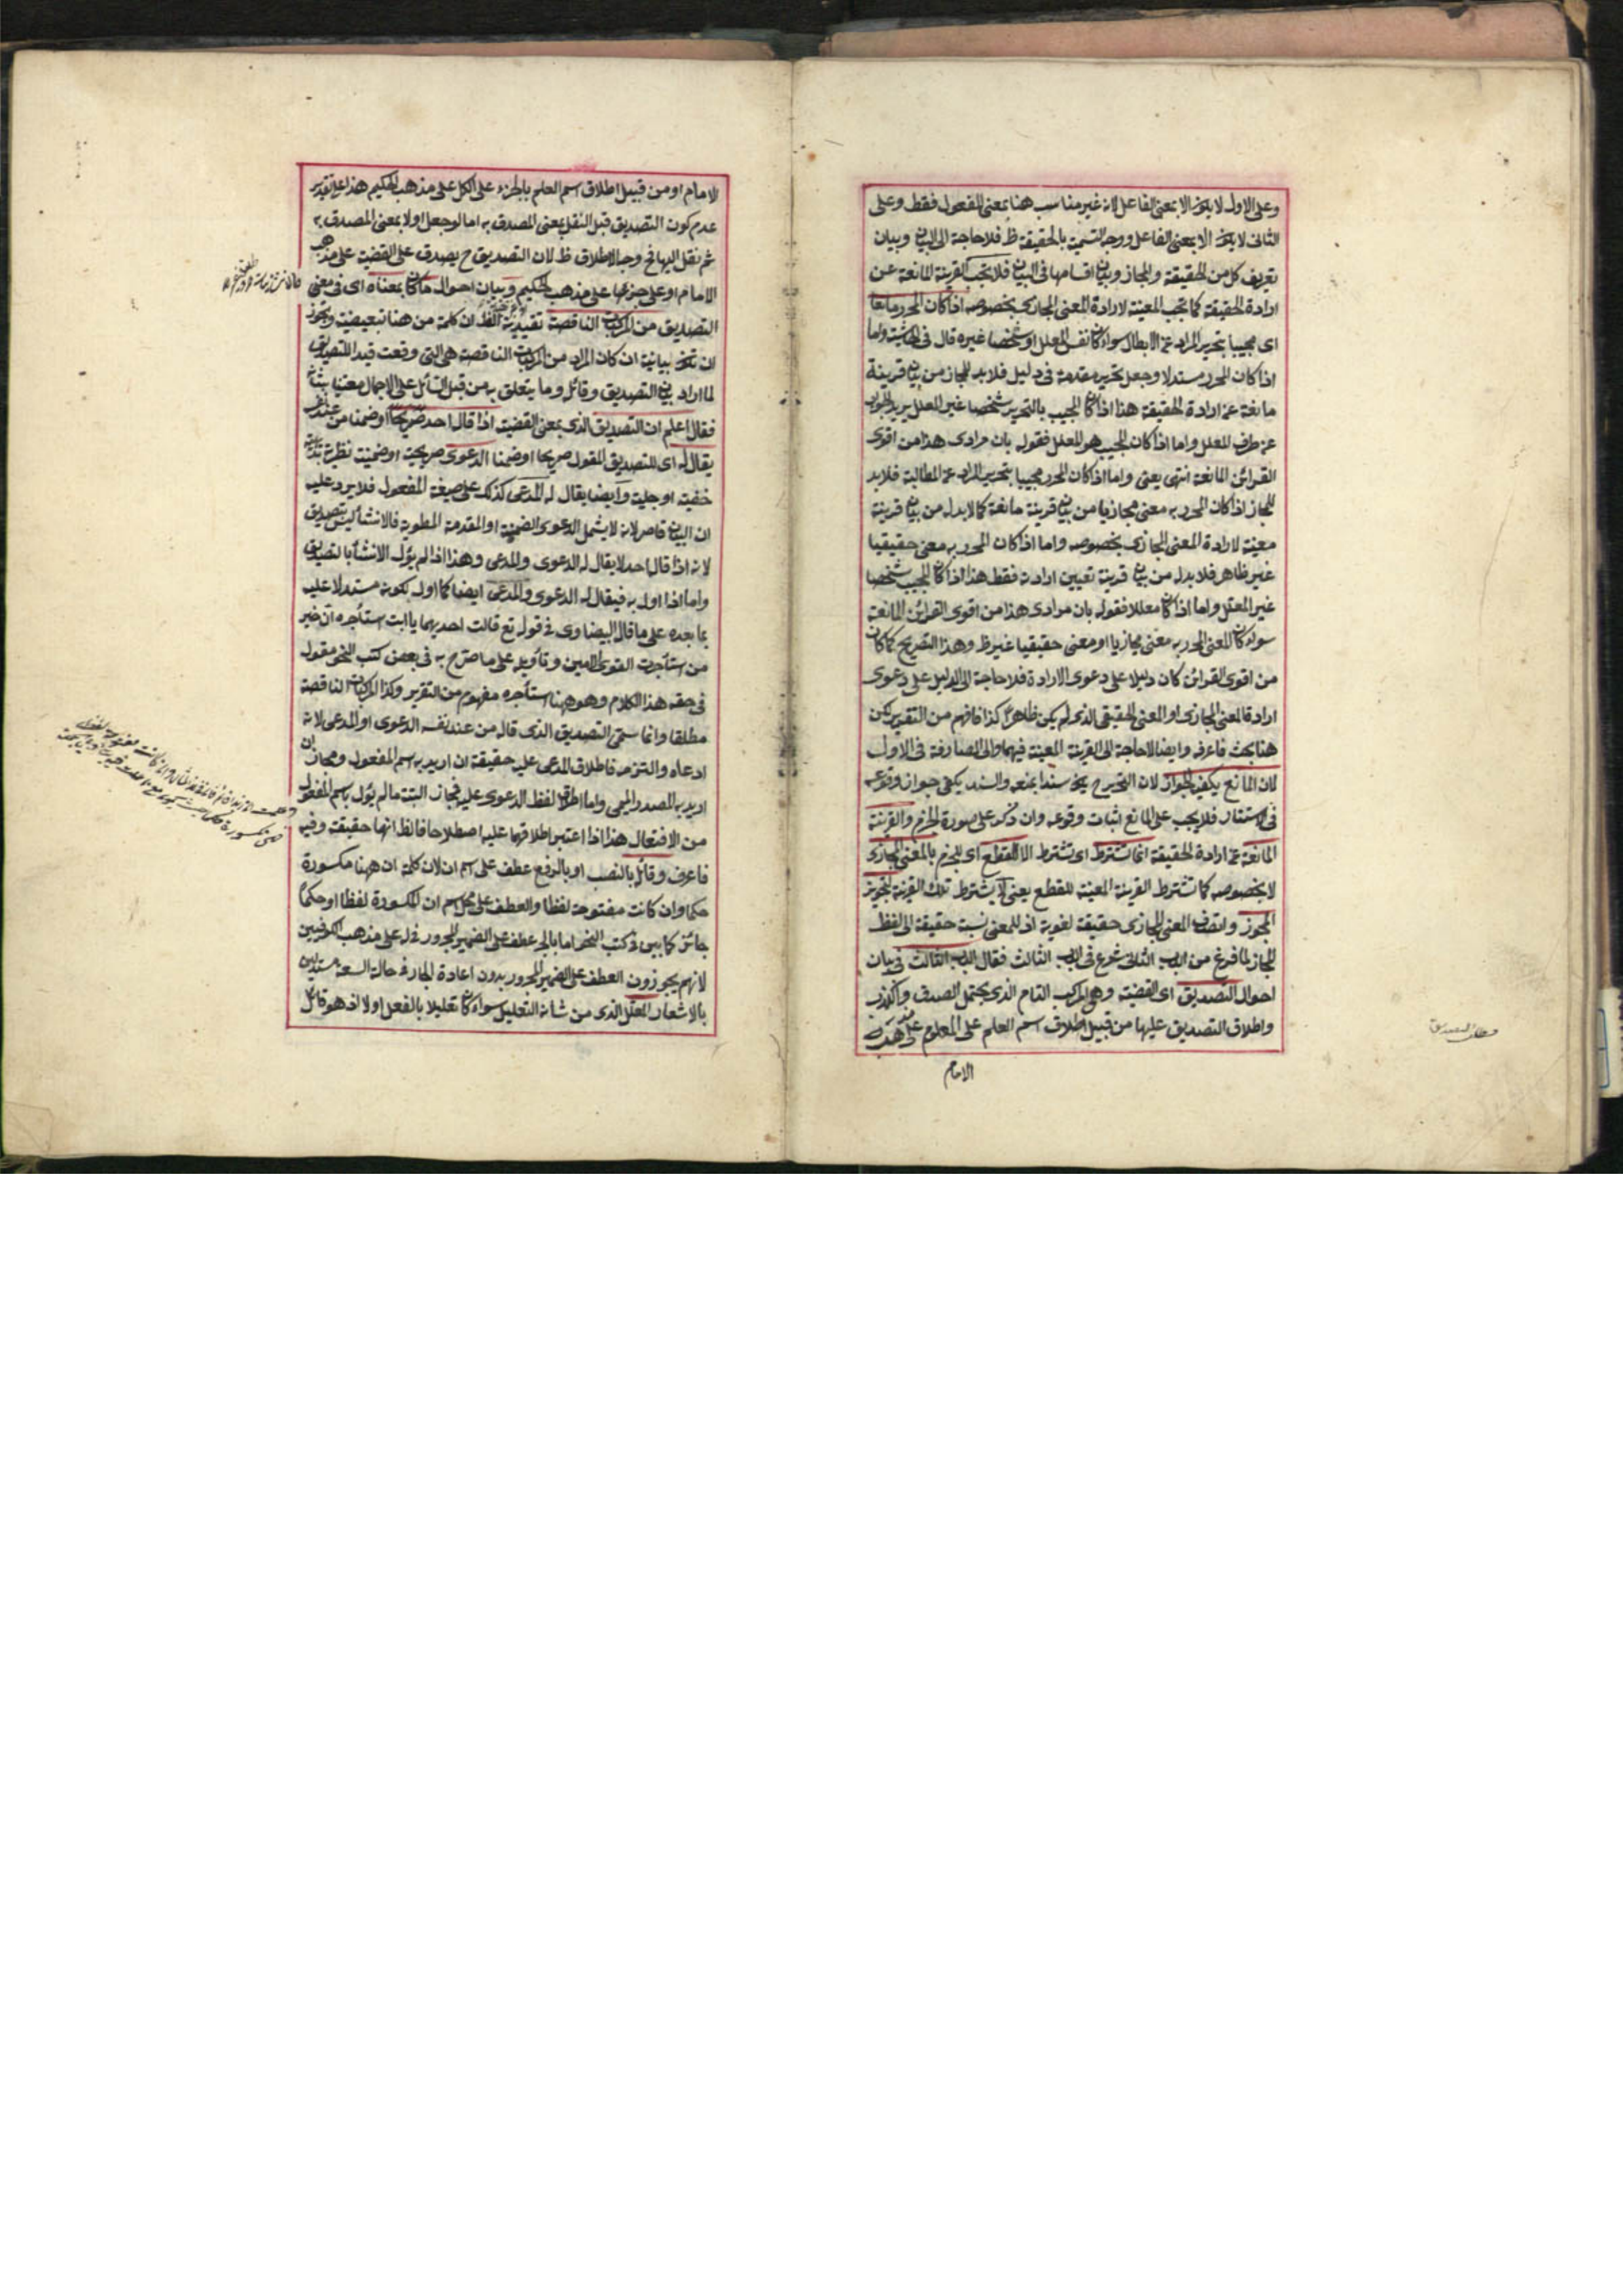 وعلى الاول لا يكون الا بمعنى الفاعل لانه غير مناسب هنا بمعنى المفعول فقط وعلى
الثانى لا يكون الا بمعنى الفاعل ووجه التسمية بالحقيقة ظ فلا حاجة الى البيان وبيان
تعريف كل من الحقيقة والمجاز وبيان اقسامها فى البيان فلا يجب القرينة المانعة عن
ارادة الحقيقة كما تجب المعينة لارادة المعنى المجازى بخصوصه اذا كان المحرر مانعا
اى مجيبا بتحرير المراد عن الابطال سواء كان نفس المعلل او شخصا غيره قال فى الحاشية واما
اذا كان المحرر مستدلا وجعل تحرير مقدمة فى دليل فلا بد للمجاز من بيان قرينة
مانعة عن ارادة الحقيقة هذا اذا كان المجيب بالتحرير شخصا غير المعلل يريد الجواب
عن طرف المعلل واما اذا كان المجيب هو المعلل فقوله بان مرادى هذا من اقوى
القرائن المانعة انتهى يعنى واما اذا كان المحرر مجيبا بتحرير المراد عن المطالبة فلا بد
للمجاز اذا كان المحرر به معنى مجازيا من بيان قرينة مانعة كما لا بد له من بيان قرينة
معينة لارادة المعنى المجازى بخصوصه واما اذا كان المحرر به معنى حقيقيا
غير ظاهر فلا بد له من بيان قرينة تعيين ارادته فقط هذا اذا كان المجيب شخصا
غير المعلل واما اذا كان معللا فقوله بان مرادى هذا من اقوى القرائن المانعة
سواء كان المعنى المحرر به معنى مجازيا او معنى حقيقيا غير ظ وهذا التصريح كما كان
من اقوى القرائن كان دليلا على دعوى الارادة فلا حاجة الى الدليل على دعوى
ارادة المعنى المجازى او المعنى الحقيقى الذى لم يكن ظاهرا كذا فافهم من التقرير لكن
هنا بحث فاعرفه وايضا لا حاجة الى القرينة المعينة فيهما والى الصارفة فى الاول
لان المانع يكفيه الجواز لان التحرير ح يكون سندا لمنعه والسند يكفى جواز وقوعه
فى الاستناد فلا يجب على المانع اثبات وقوعه وان ذكره على صورة الجزم والقرينة
المانعة عن ارادة الحقيقة انما تشترط اى تشترط الا للقطع اى للجزم بالمعنى المجازى
لا بخصوصه كما تشترط القرينة المعينة للقطع يعنى لا يشترط تلك القرينة لتجويز
المجوز واتصاف المعنى المجازى حقيقة لغوية اذ للمعنى نسبة حقيقة الى لفظ
المجاز لما فرغ من الباب الثانى شرع فى الباب الثالث فقال الباب الثالث فى بيان
احوال التصديق اى القضية وهى المركب التام الذى يحتمل الصدق والكذب
واطلاق التصديق عليها من قبيل اطلاق اسم العلم على المعلوم على مذهب
الامام
الامام او من قبيل اطلاق اسم العلم بالجزء على الكل على مذهب الحكيم هذا على تقدير
عدم كون التصديق قبل النقل بمعنى المصدق به اما لو جعل اولا بمعنى المصدق به
ثم نقل اليها فح وجه الاطلاق ظ لان التصديق ح يصدق على القضية على مذهب
الامام او على جزئها على مذهب الحكيم وبيان احوال ما كان بمعناه اى فى معنى
التصديق من المركبات الناقصة تقييدية الظ ان كلمة من هنا تبعيضية ويجوز
ان تكون بيانية ان كان المراد من المركبات الناقصة هى التى وقعت قيدا للتصديق
لما اراد بيان التصديق وقائله وما يتعلق به من قبل السائل على الاجمال معتنيا بشانه
فقال اعلم ان التصديق الذى بمعنى القضية اذا قال احد صريحا او ضمنا من عند نفسه
يقال له اى للتصديق المقول صريحا او ضمنا الدعوى صريحية او ضمنية نظرية بديهية
خفية او جلية وايضا يقال له المدعى كذلك على صيغة المفعول فلا يرد عليه
ان البيان قاصر لانه لا يشمل الدعوى الضمنية او المقدمة المطوية فالانشأ ليس بتصديق
لانه اذا قال احد لا يقال له الدعوى والمدعى وهذا اذا لم يؤل الانشأ بالتصديق
واما اذا اول به فيقال له الدعوى والمدعى ايضا كما اول لكونه مستدلا عليه
بما بعده على ما قال البيضاوى فى قوله تع قالت احديهما يا ابت استأجره ان خير
من استأجرت القوى الامين وتأويله على ما صرح به فى بعض كتب النحو مقول
فى حقه هذا الكلام وهو ههنا استأجره مفهوم من التقرير وكذا المركبات الناقصة
مطلقا وانما سمى التصديق الذى قاله من عند نفسه الدعوى او المدعى لانه
ادعاه والتزمه فاطلاق المدعى عليه حقيقة ان اريد به اسم المفعول ومجاز ان
اريد به المصدر الميمى واما اطلاق لفظ الدعوى عليه فمجاز البتة ما لم يؤل باسم المفعول
من الافتعال هذا اذا اعتبر اطلاقهما عليه اصطلاحا فالظ انها حقيقة وفيه
فاعرف وقائله بالنصب او بالرفع عطف على اسم ان لان كلمة ان ههنا مكسورة
حكما وان كانت مفتوحة لفظا والعطف على محل اسم ان المكسورة لفظا او حكما
جائز كما بين فى كتب النحو اما بالجر عطف على الضمير المجرور فى له على مذهب الكوفيين
لانهم يجوزون العطف على الضمير المجرور بدون اعادة الجار فى حالة السعة مستدلين
بالاشعار المعلل الذى من شانه التعليل سواء كان تعليلا بالفعل او لا اذ هو قائل